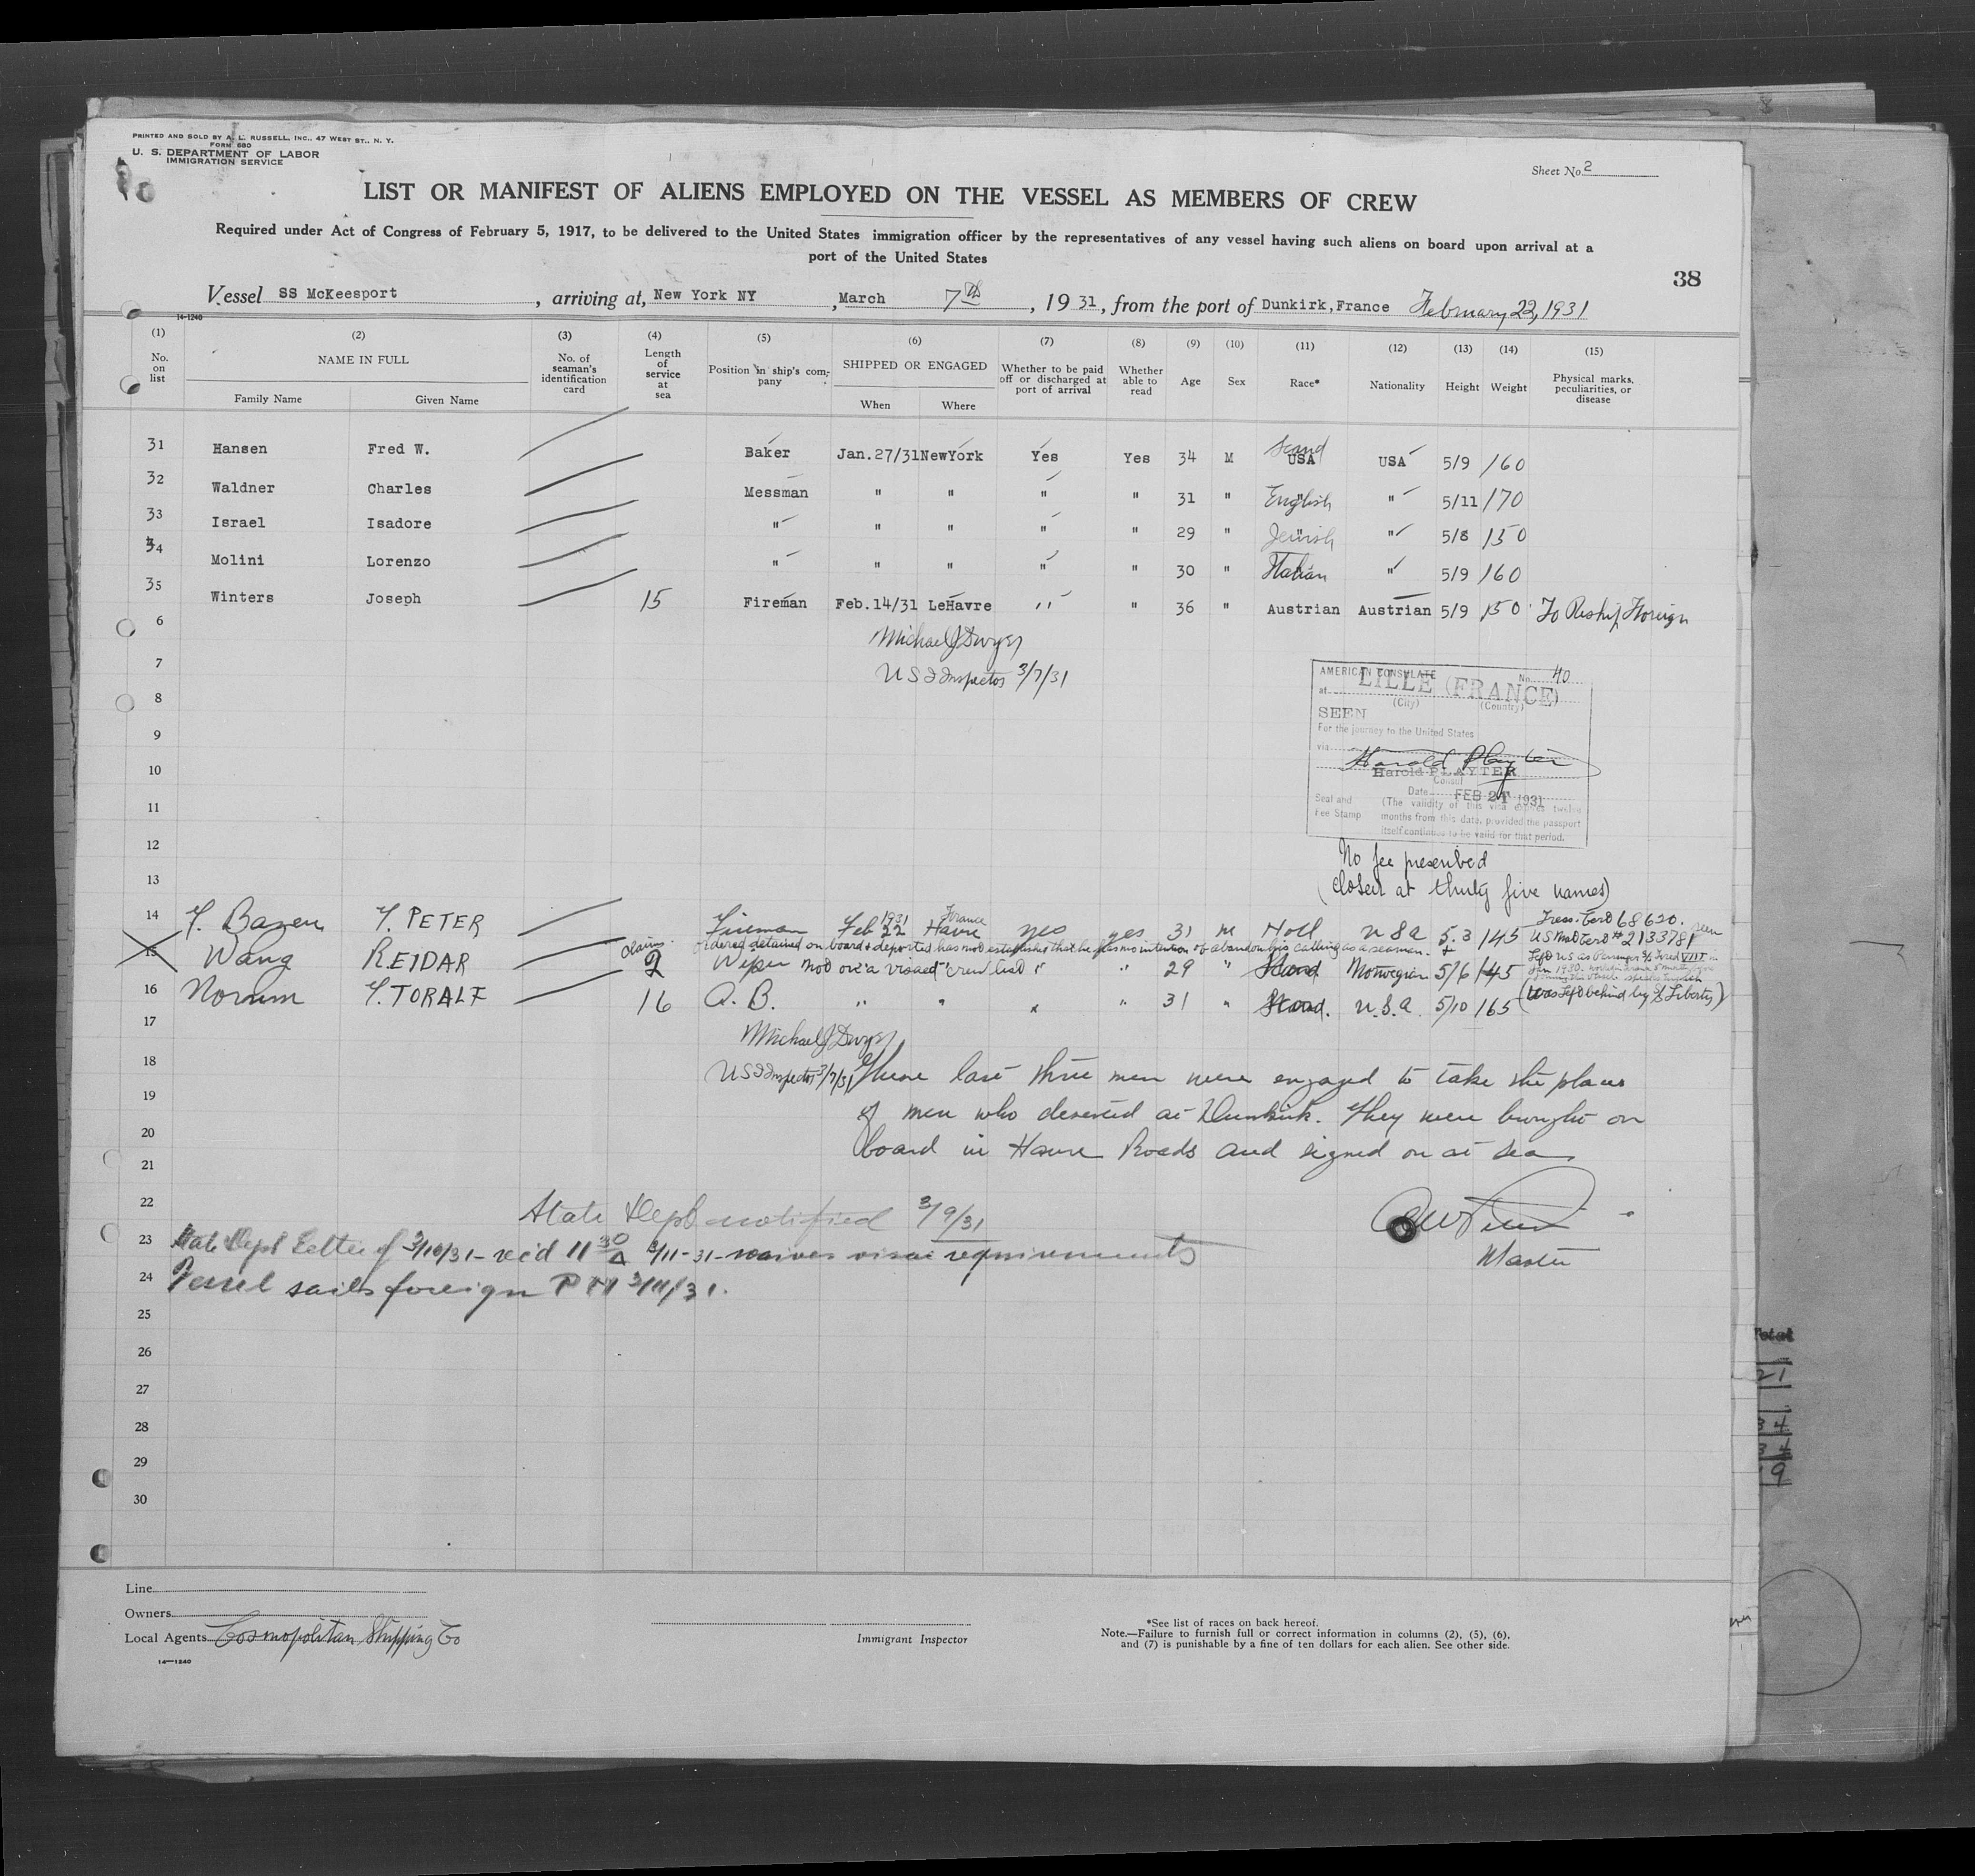 PRINTED AND SOLD BY A. L. RUSSELL, INC., 47 WEST ST., N. Y.
FORM 680
U. S. DEPARTMENT OF LABOR
IMMIGRATION SERVICE
Sheet No. 2
LIST OR MANIFEST OF ALIENS EMPLOYED ON THE VESSEL AS MEMBERS OF CREW
Required under Act of Congress of February 5, 1917, to be delivered to the United States immigration officer by the representatives of any vessel having such aliens on board upon arrival at a
port of the United States
38
Vessel SS McKeesport, arriving at, New York NY, March 7th, 1931, from the port of Dunkirk, France February 22, 1931
14-1240
(1) (2) (3) (4) (5) (6) (7) (8) (9) (10) (11) (12) (13) (14) (15)
No. on list NAME IN FULL No. of seaman's identification card Length of service at sea Position in ship's company SHIPPED OR ENGAGED Whether to be paid off or discharged at port of arrival Whether able to read Age Sex Race* Nationality Height Weight Physical marks, peculiarities, or disease
Family Name Given Name When Where
31 Hansen Fred W. Baker Jan.27/31 NewYork Yes Yes 34 M Scand USA USA 5/9 160
32 Waldner Charles Messman " " " " 31 " English " 5/11 170
33 Israel Isadore " " " " " 29 " Jewish " 5/8 150
34 Molini Lorenzo " " " " " 30 " Italian " 5/9 160
35 Winters Joseph 15 Fireman Feb.14/31 LeHavre " " 36 " Austrian Austrian 5/9 150 To Reship Foreign
6 Michael J Dwyer
7 U S I Inspector 3/7/31
8
9
10
11
12
13
AMERICAN CONSULATE No. 40
at LILLE (FRANCE)
(City) (Country)
SEEN
For the journey to the United States
via
Harold Playter
Harold PLAYTER
Consul
Date FEB 21 1931
Seal and Fee Stamp
(The validity of this visa expires twelve
months from this date, provided the passport
itself continues to be valid for that period.
No fee prescribed
(closed at thirty five names)
14 Y. PETER Fireman Feb 22 1931 Havre France yes yes 31 M Holl U S A 5.3 145 68620. seen
US 2133781
Ordered detained on board & deported, has not established that he has no intention of abandoning his calling as a seaman.
15 Wang REIDAR claims 2 Wiper Not on a visaed "crew list" " " 29 " Scand Norwegian 5/6 145
16 Norum Y. TORALF 16 A. B. " " " " 31 " Scand. U.S.A. 5/10 165 (Was left behind by SS Liberty)
17 Michael J Dwyer
18 U S I Inspector 3/7/31 These last three men were engaged to take the place
19 of men who deserted at Dunkirk. They were brought on
20 board in Havre Roads and signed on at sea
21
22 State Dept notified 3/9/31
23 State Dept Letter of 3/10/31 - rec'd 11 30 A 3/11-31 - waives visa requirements
Master
24 Vessel sails foreign PM 3/11/31.
25
26
27
28
29
30
Line
Owners
Local Agents Cosmopolitan Shipping Co
14-1240
Immigrant Inspector
*See list of races on back hereof.
Note.—Failure to furnish full or correct information in columns (2), (5), (6),
and (7) is punishable by a fine of ten dollars for each alien. See other side.
Total
21
34